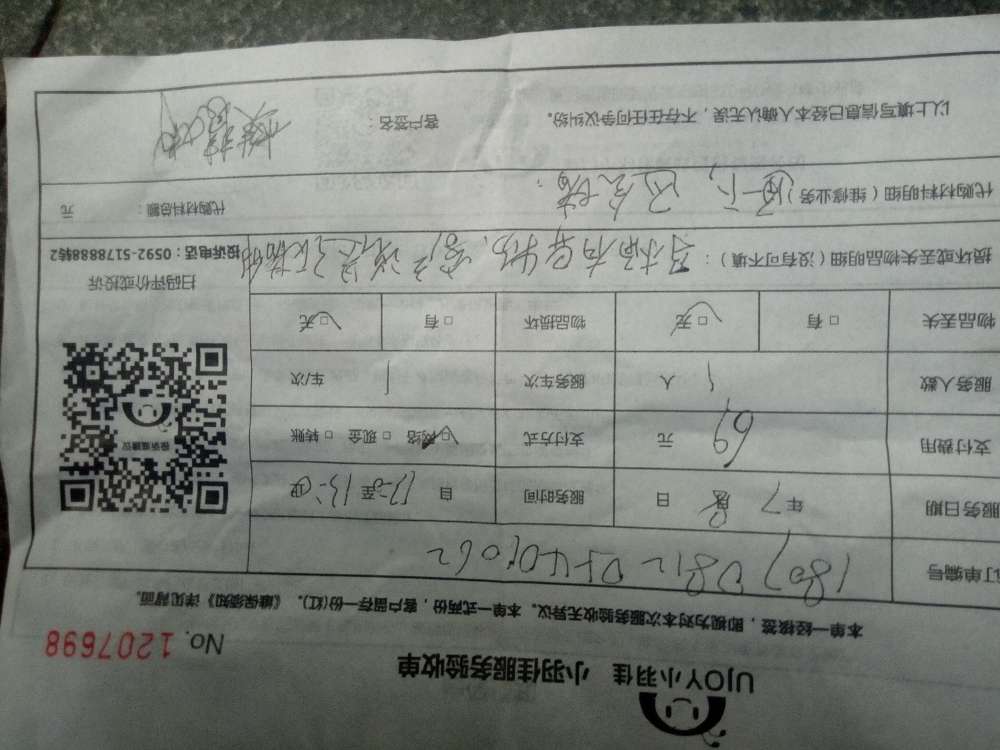 UJOY小羽佳 小羽佳服务验收单
No. 1207698
本单一经接签，即视为对本次服务验收无异议。本单一式两份，客户留存一份(红)。《维保须知》详见背面。
订单编号 1807081205401062
服务日期 年 7 月 8 日 服务时间 自 12:30 至 13:30
支付费用 69 元 支付方式 ☑网络 □现金 □转账
服务人数 1 人 服务车次 1 车/次
物品丢失 □有 ☑无 物品损坏 □有 ☑无
扫码评价或投诉
投诉电话：0592-5178888转2
投诉或建议
损坏或丢失物品明细（没有可不填）：
代购材料明细（维修业务）： 代购材料总额： 元
以上填写信息已经本人确认无误，不存在任何争议纠纷。 客户签名：